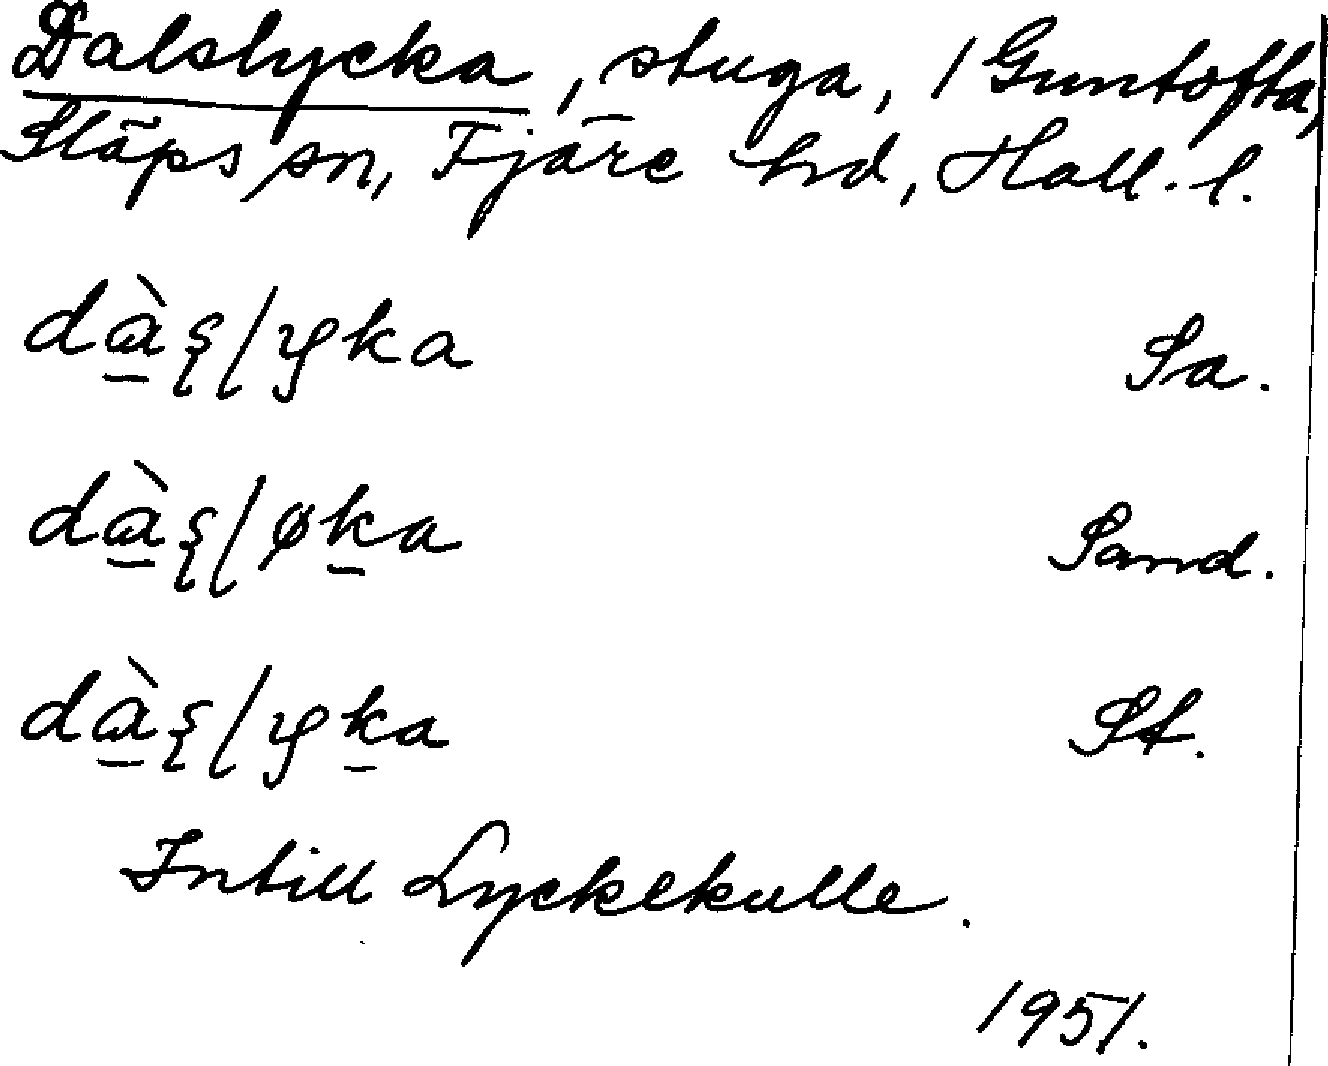 Dalslycka, stuga, 1 Guntofta,
Släps sn, Fjäre hd, Hall. l.
dàʂlyka Sa.
dàʂløka Sand.
dàʂlyka St.
Intill Lyckekulle.
1951.